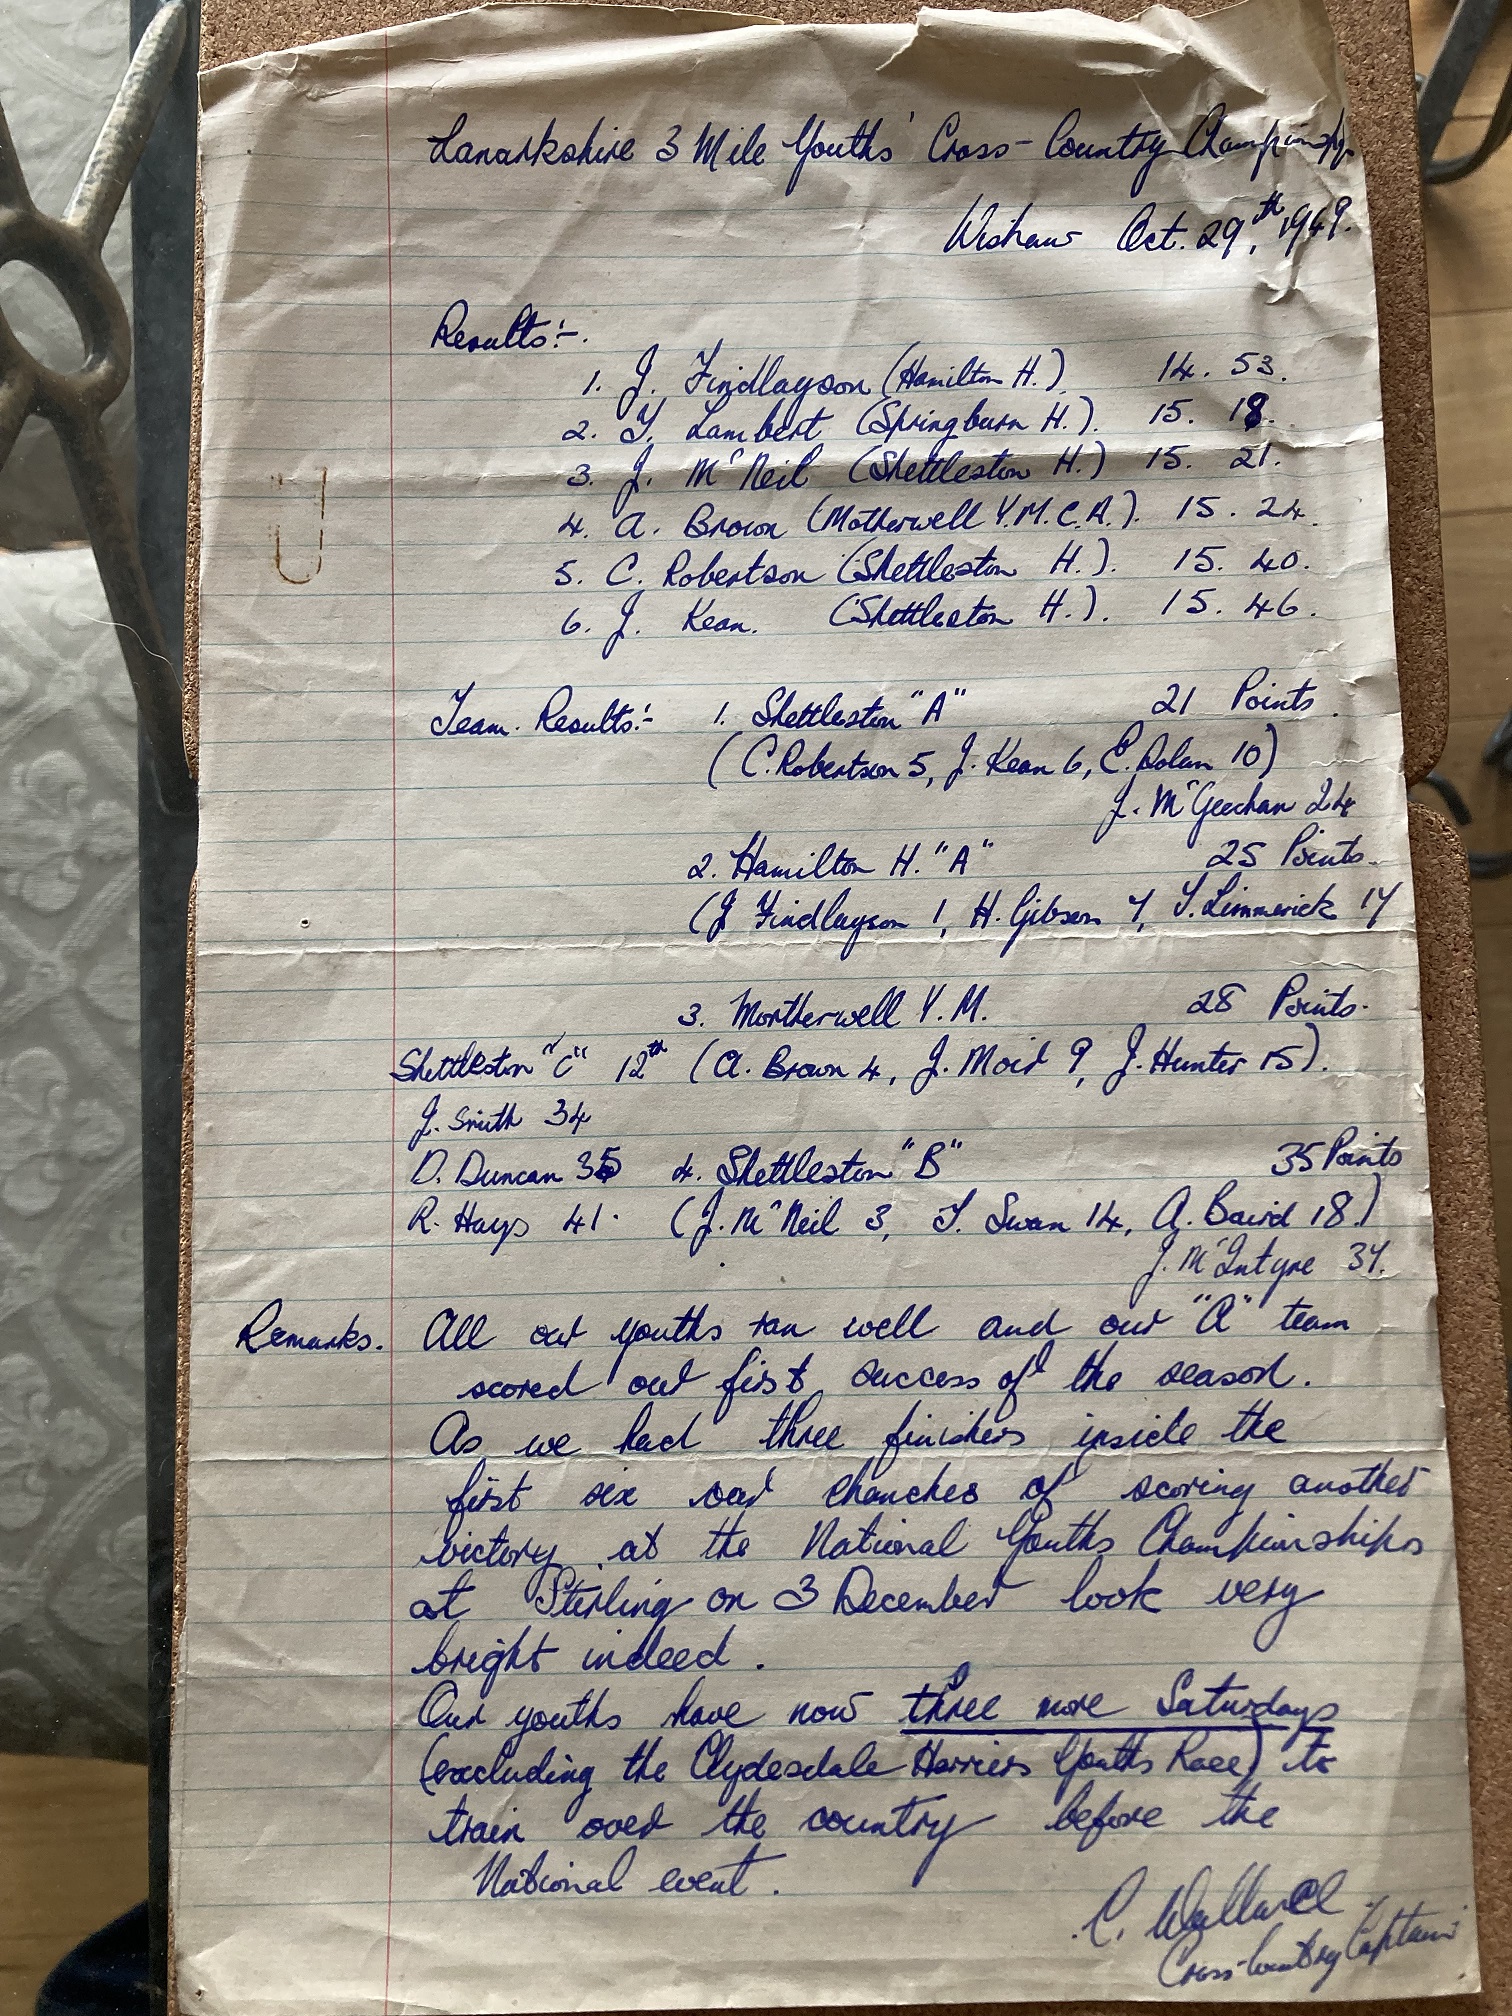 Lanarkshire 3 Mile Youths' Cross-Country Championships
Wishaw Oct. 29th, 1949.
Results:-
1. J. Findlayson (Hamilton H.) 14. 53.
2. T. Lambert (Springburn H.). 15. 18.
3. J. McNeil (Shettleston H.) 15. 21.
4. A. Brown (Motherwell Y.M.C.A.). 15. 24.
5. C. Robertson (Shettleston H.). 15. 40.
6. J. Kean. (Shettleston H.). 15. 46.
Team Results:- 1. Shettleston "A" 21 Points.
(C. Robertson 5, J. Kean 6, E. Dolan 10)
J. McGeechan 24
2. Hamilton H. "A" 25 Points.
(J Findlayson 1, H. Gibson 7, T. Limmerick 17
3. Mortherwell Y.M. 28 Points.
(A. Brown 4, J. Moir 9, J. Hunter 15).
Shettleston "C" 12th
J. Smith 34
D. Duncan 35
R. Hays 41.
4. Shettleston "B" 35 Points
(J. McNeil 3, T. Swan 14, A. Baird 18.)
J. McIntyre 37.
Remarks. All our youths ran well and our "A" team
scored our first success of the season.
As we had three finishers inside the
first six our chanches of scoring another
victory at the National Youths Championships
at Stirling on 3 December look very
bright indeed.
Our youths have now three more Saturdays
(excluding the Clydesdale Harriers Youths Race) to
train over the country before the
National event.
C. Wallace.
Cross-Country Captain